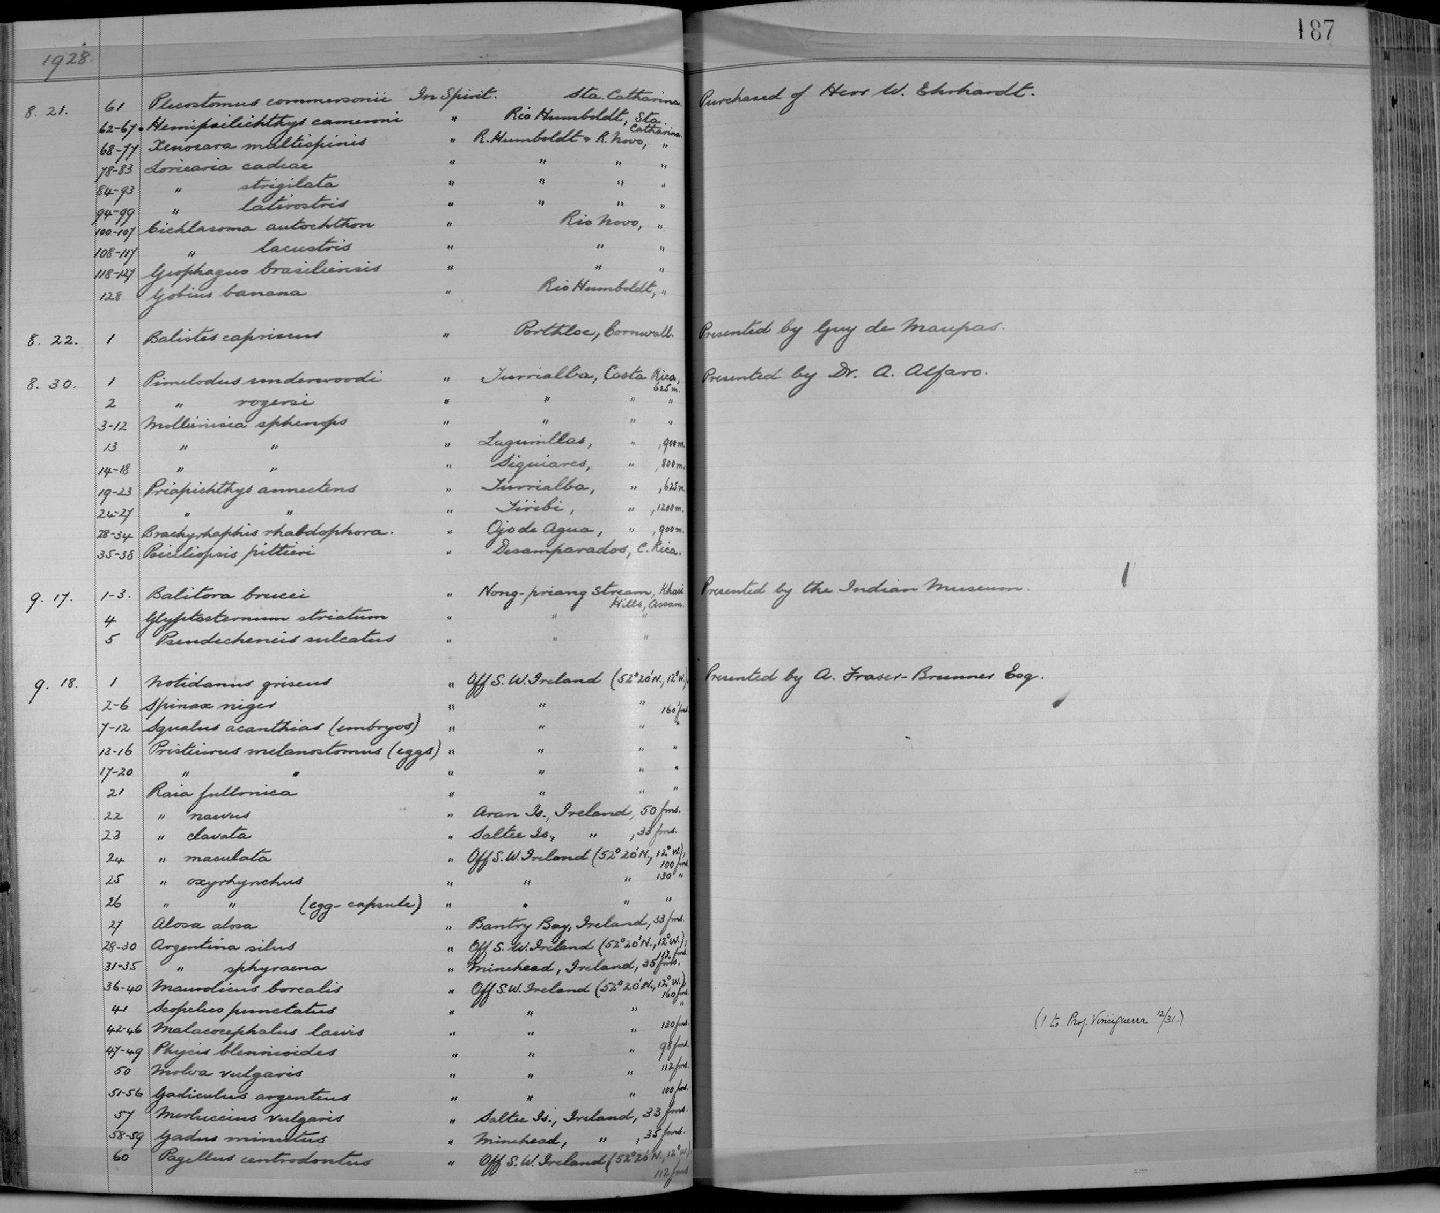 187
1928.
8. 21. 61 Plecostomus commersonii In Spirit. Sta Catharina Purchased of Herr W. Ehrhardt.
62-67 Hemipsilichthys cameroni " Rio Humboldt, Sta. Catharina.
68-77 Xenocara multispinis " R. Humboldt & R. Novo, "
78-83 Loricaria cadeae " " " "
84-93 " strigilata " " " "
94-99 " latirostris " " " "
100-107 Cichlasoma autochthon " Rio Novo, "
108-117 " lacustris " " "
118-127 Geophagus brasiliensis " " "
128 Gobius banana " Rio Humboldt, "
8. 22. 1 Balistes capriscus " Porthloe, Cornwall. Presented by Guy de Maupas.
8. 30. 1 Pimelodus underwoodi " Turrialba, Costa Rica, 625 m. Presented by Dr. A. Alfaro.
2 " rogersi " " " "
3-12 Mollienisia sphenops " " " "
13 " " " Lagunillas, " , 900 m.
14-18 " " " Siquiares, " , 800 m.
19-23 Priapichthys annectens " Turrialba, " , 625 m.
24-27 " " " Tiribi, " , 1200 m.
28-34 Brachyrhaphis rhabdophora. " Ojo de Agua, " , 900 m.
35-38 Poeciliopsis pittieri " Desamparados, C. Rica.
9. 17. 1-3. Balitora brucei " Nong-priang Stream, Khasi Hills, Assam. Presented by the Indian Museum.
4 Glyptosternum striatum " " "
5 Pseudecheneis sulcatus " " "
9. 18. 1 Notidanus griseus " Off S. W. Ireland (52° 20' N., 12° W.) Presented by A. Fraser-Brunner Esq.
2-6 Spinax niger " " " 160 fms.
7-12 Squalus acanthias (embryos) " " " "
13-16 Pristiurus melanostomus (eggs) " " " "
17-20 " " " " " "
21 Raia fullonica " " " "
22 " naevus " Aran Is., Ireland, 50 fms.
23 " clavata " Saltee Is., " , 33 fms.
24 " maculata " Off S. W. Ireland (52° 20' N., 12° W.), 100 fms.
25 " oxyrhynchus " " " 130 "
26 " " (egg-capsule) " " " "
27 Alosa alosa " Bantry Bay, Ireland, 33 fms.
28-30 Argentina silus " Off S. W. Ireland (52° 20' N., 12° W.), 112 fms.
31-35 " sphyraena " Minehead, Ireland, 35 fms.
36-40 Maurolicus borealis " Off S. W. Ireland (52° 20' N., 12° W.), 160 fms.
41 Scopelus punctatus " " " "
42-46 Malacocephalus laevis " " " 130 fms. (1 to Prof. Vinciguerra 12/31.)
47-49 Phycis blennioides " " " 98 fms.
50 Molva vulgaris " " " 112 fms.
51-56 Gadiculus argenteus " " " 100 fms.
57 Merluccius vulgaris " Saltee Is., Ireland, 33 fms.
58-59 Gadus minutus " Minehead, " , 35 fms.
60 Pagellus centrodontus " Off S. W. Ireland (52° 20' N., 12° W.) 112 fms